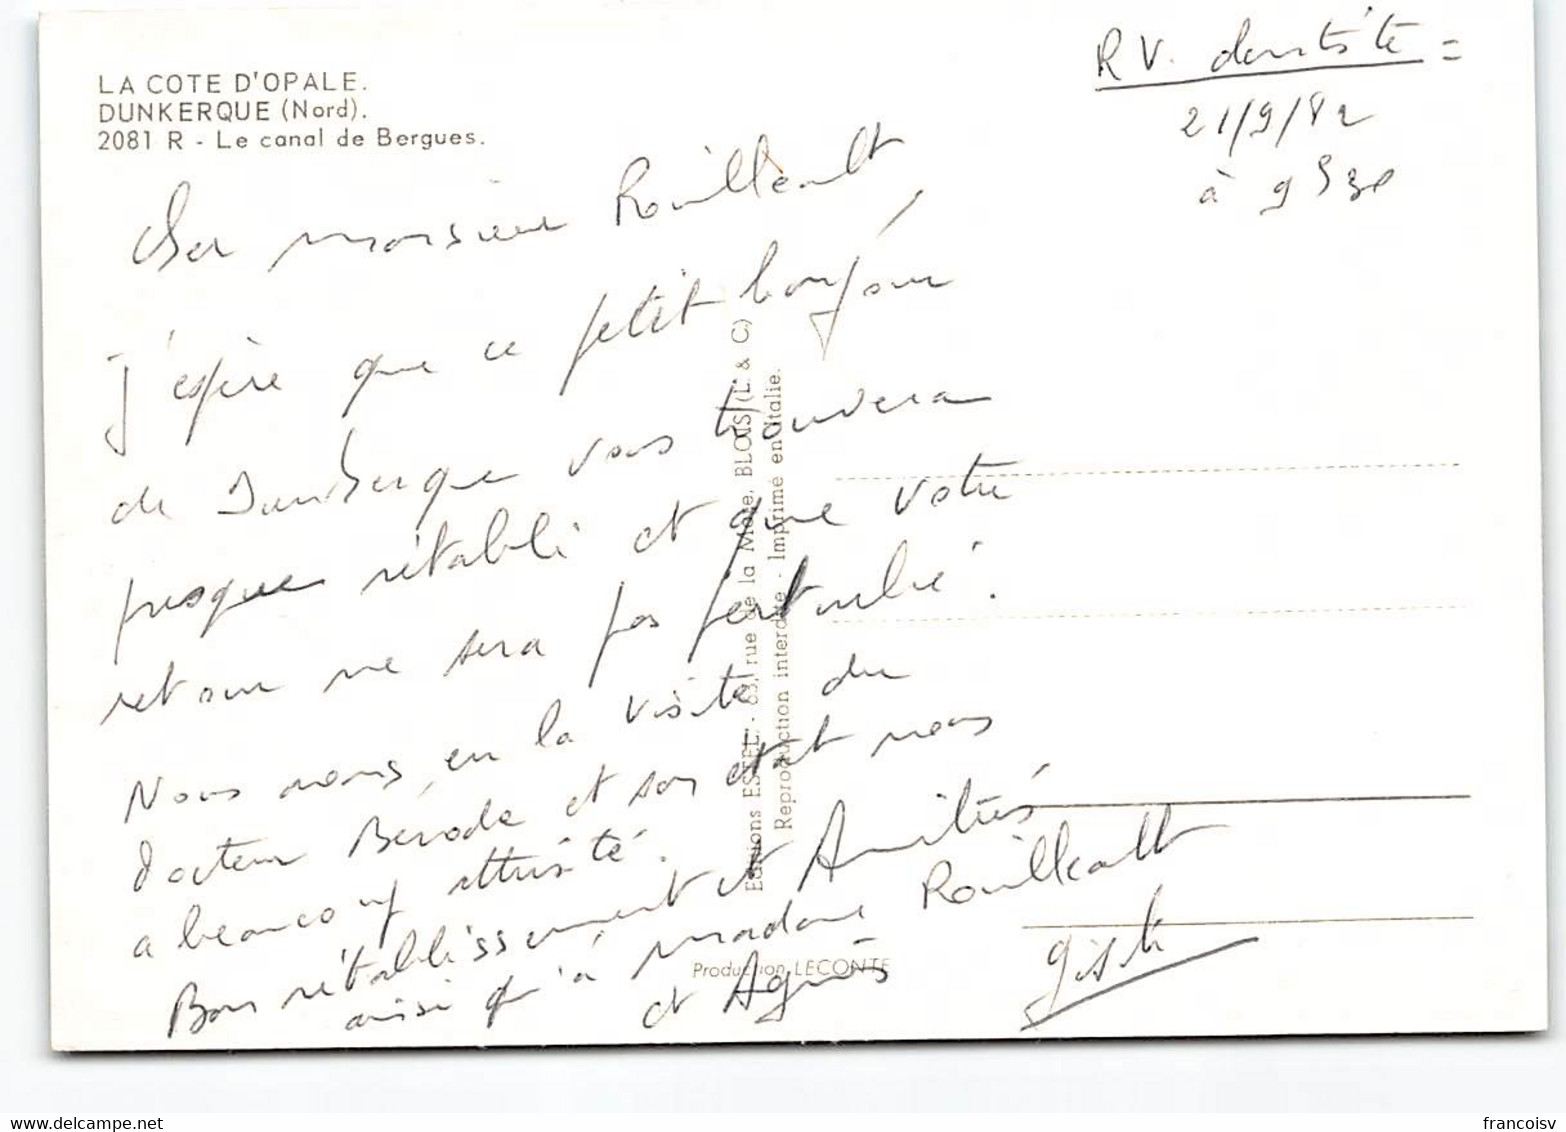 LA COTE D'OPALE.
DUNKERQUE (Nord).
2081 R - Le canal de Bergues.
R V. dentiste =
21/9/82
à 9h30
Cher monsieur Rouilleault,
J'espère que ce petit bonjour
de Dunkerque vous trouvera
presque rétabli et que votre
retour ne sera pas perturbé.
Nous avons eu la visite du
docteur Bérode et son état nous
a beaucoup attristé.
Bon rétablissement et Amitiés
ainsi qu'à madame Rouilleault
et Agnès
Editions ESTEL - 83, rue de la Mare, BLOIS (L. & C)
Reproduction interdite - Imprimé en Italie.
Production LECONTE
francoisv